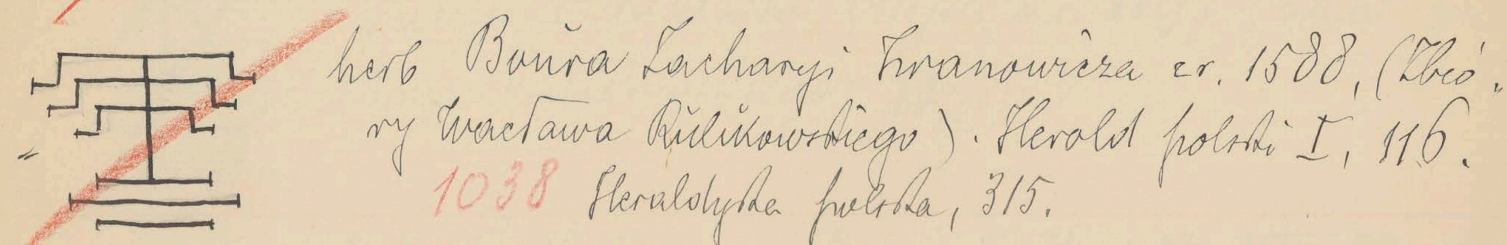 herb Boŭra Zacharyi Iwanowicza z r. 1588, (Zbio-
ry Wacława Rŭlikowskiego). Herold polski I, 116.
1038 Heraldyka polska, 315.